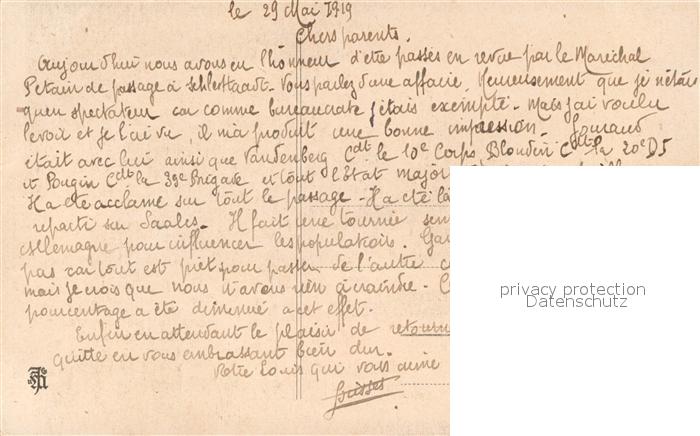 le 29 Mai 1919
Chers parents.
Aujourd'hui nous avons eu l'honneur d'etre passés en revue par le Maréchal
Petain de passage à Schlestadt. Vous parlez d'une affaire. Heureusement que je n'étais
qu'en spectateur car comme bureaucrate j'étais exempté. Mais j'ai voulu
le voir et je l'ai vu, il m'a produit une bonne impression. Gouraud
était avec lui ainsi que Vandenberg Cdt le 10e Corps, Blondin Cdt la 20e D5
et Pougin Cdt la 39e Brigade et tout l'Etat major
Il a été acclamé sur tout le passage. Il a été là
reparti sur Saales. Il fait une tournée
Allemagne pour influencer les populations.
pas car tout est prêt pour passer de l'autre
mais je crois que nous n'avons rien à craindre.
pourcentage a été diminué à cet effet.
Enfin en attendant le plaisir de retourn
quitte en vous embrassant bien dur.
Votre Louis qui vous aime
privacy protection
Datenschutz